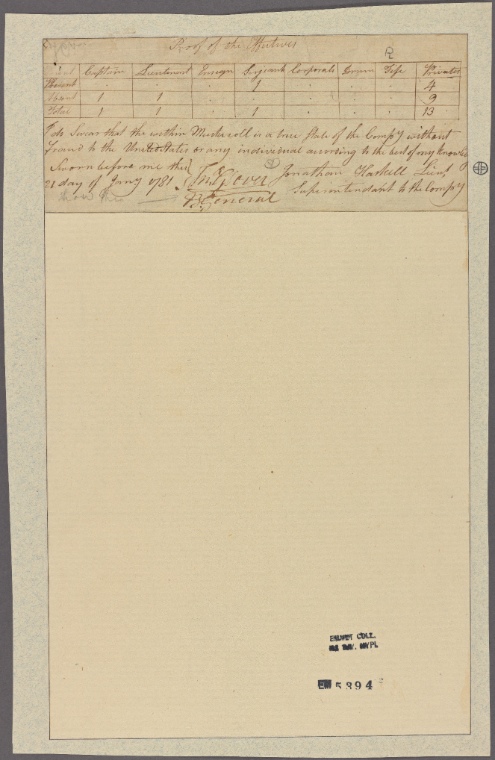 Proof of the Effectives
Captain Lieutenant Ensign Serjeants Corporals Drum Fife Privates
Present 1 4
Absent 1 1 9
Total 1 1 1 13
I do Swear that the within Musteroll is a true State of the Compy without
fraud to the United States or any individual according to the best of my knowledg
Sworn before me this Jonathan Haskell Lieut
21 day of Janry 1781 Jn Glover Superintendant to the Compy
B General
EMMET COLL.
5394